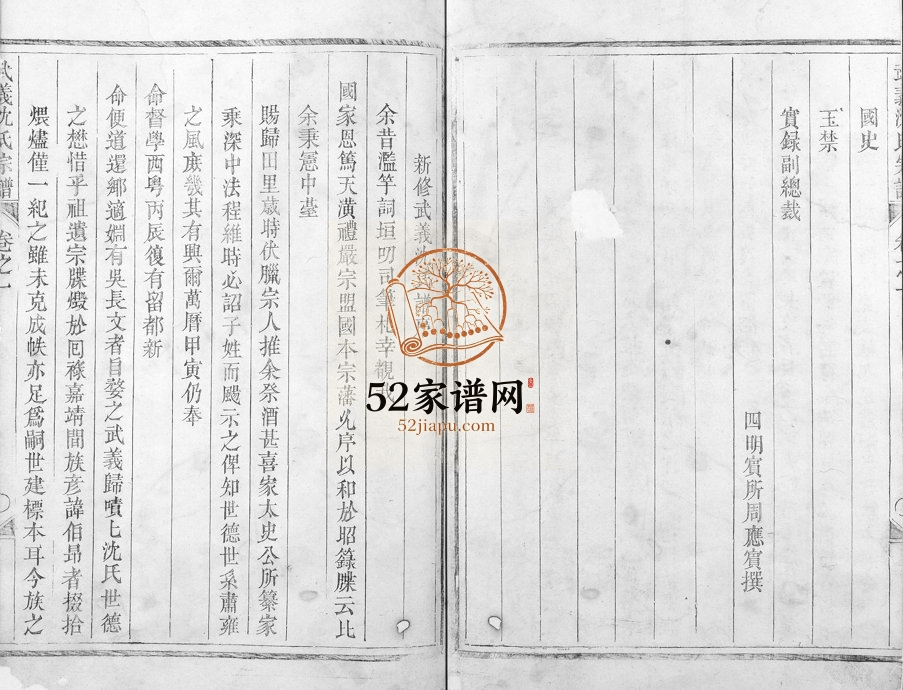 國史
玉禁
實録副總裁
四明賓所周應賓撰
新修武義沈
余昔濫竽詞垣叨司筆札幸覩
國家恩篤天潢禮嚴宗盟國本宗藩允序以和於昭籙牒云比
余秉憲中臺
賜歸田里歲時伏臘宗人推余祭酒甚喜家太史公所纂家
乘深中法程維時必詔子姓而颺示之俾知世德世系肅雍
之風庶幾其有興爾萬曆甲寅仍奉
命督學西粤丙辰復有留都新
命便道還鄉適婣有吳長文者自婺之武義歸嘖嘖沈氏世德
之懋惜乎祖遺宗牒燬於回祿嘉靖間族彦諱佰昻者掇拾
煨燼僅一紀之雖未克成帙亦足爲嗣世建標本耳今族之
武義沈氏宗譜
卷之一
52家谱网
52jiapu.com